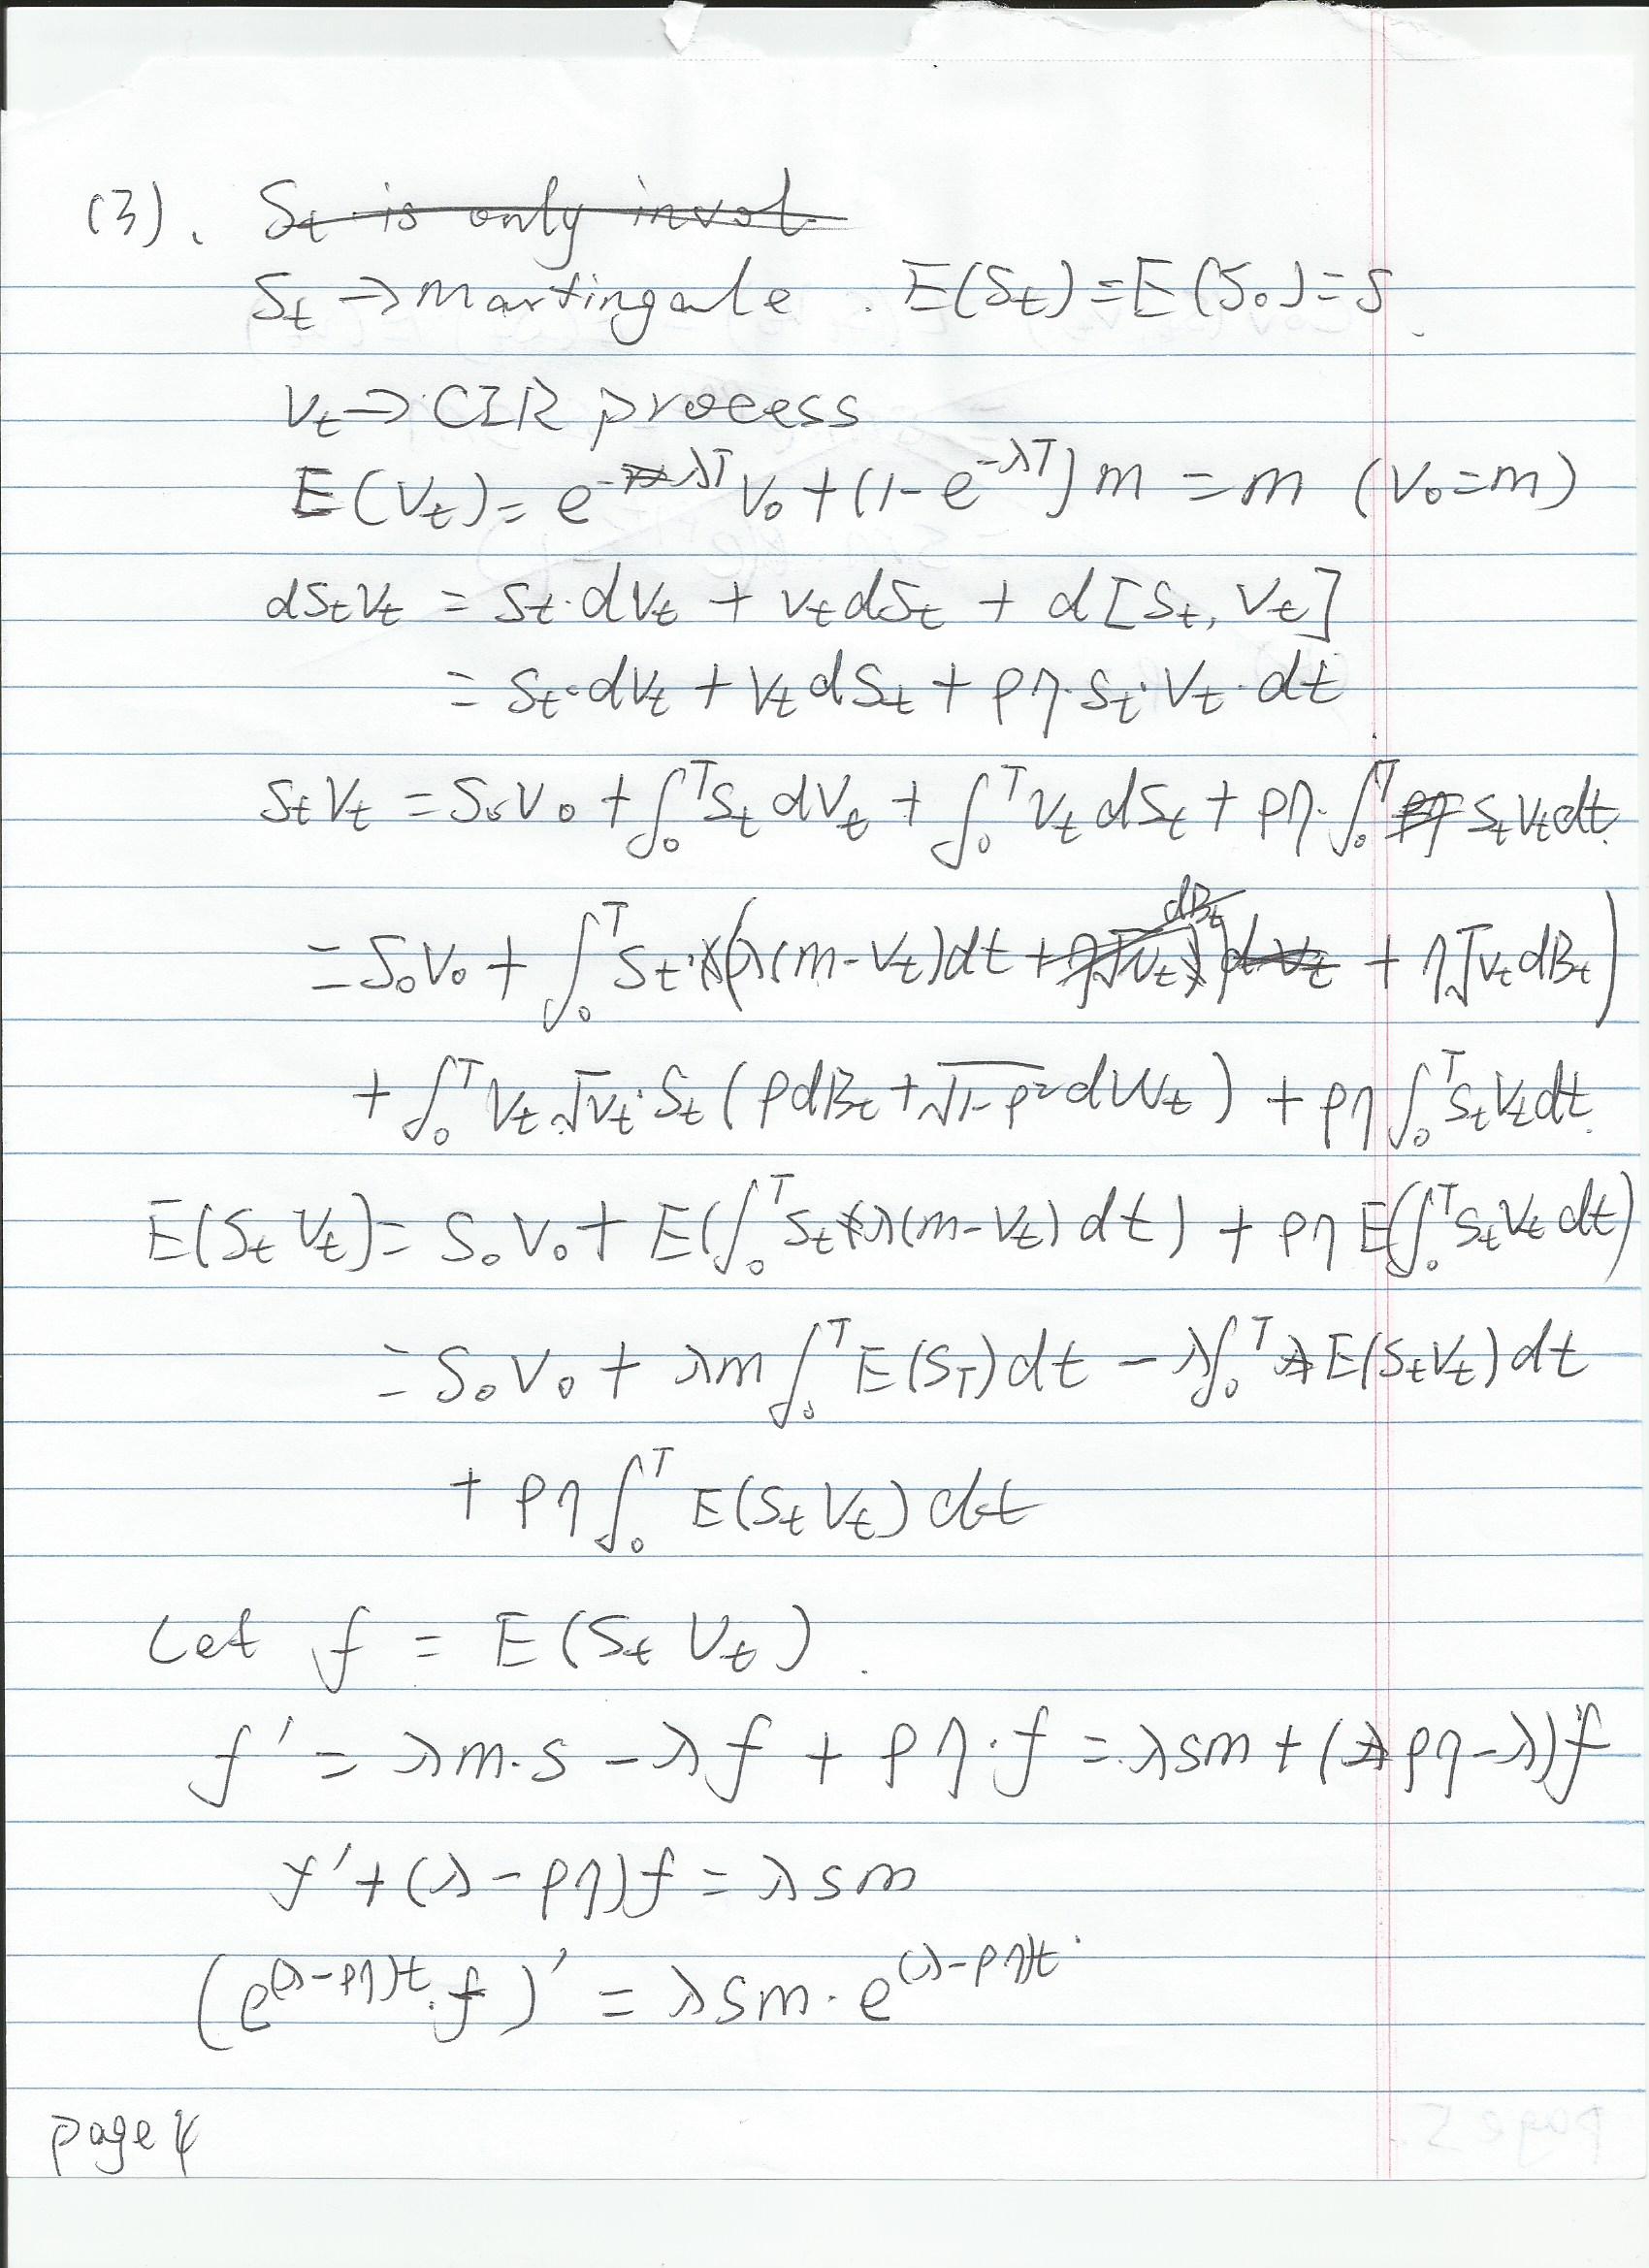 (3). S_t is only invol.
S_t → Martingale. E(S_t) = E(S_0) = S.
V_t ⇒ CIR process
E(V_t) = e^{-λT} V_0 + (1 - e^{-λT}) m = m (V_0 = m)
dS_tV_t = S_t·dV_t + V_t dS_t + d[S_t, V_t]
= S_t·dV_t + V_t dS_t + ρη·S_t·V_t·dt
S_tV_t = S_0V_0 + ∫_0^T S_t dV_t + ∫_0^T V_t dS_t + ρη·∫_0^T S_tV_t dt.
= S_0V_0 + ∫_0^T S_t·(λ(m - V_t)dt + η√V_t dB_t)
+ ∫_0^T V_t √V_t·S_t (ρdB_t + √1-ρ² dW_t) + ρη ∫_0^T S_tV_t dt.
E(S_t V_t) = S_0V_0 + E(∫_0^T S_t λ(m - V_t) dt) + ρη E(∫_0^T S_tV_t dt)
= S_0V_0 + λm ∫_0^T E(S_T) dt - λ∫_0^T E(S_tV_t) dt
+ ρη ∫_0^T E(S_tV_t) dt
Let f = E(S_t V_t).
f' = λm·s - λf + ρη·f = λsm + (ρη - λ)f
f' + (λ - ρη)f = λsm
(e^{(λ-ρη)t}·f)' = λsm·e^{(λ-ρη)t}.
page 4